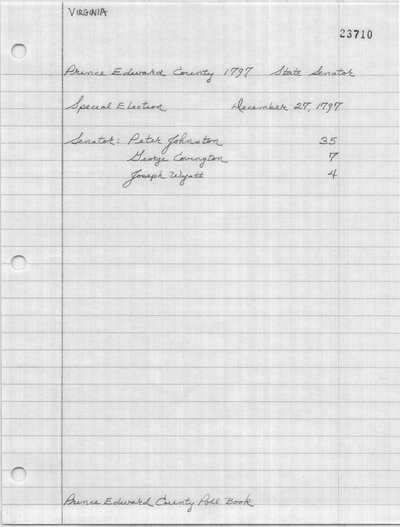 VIRGINIA
23710
Prince Edward County 1797 State Senator
Special Election December 27, 1797
Senator: Peter Johnston 35
George Covington 7
Joseph Wyatt 4
Prince Edward County Poll Book